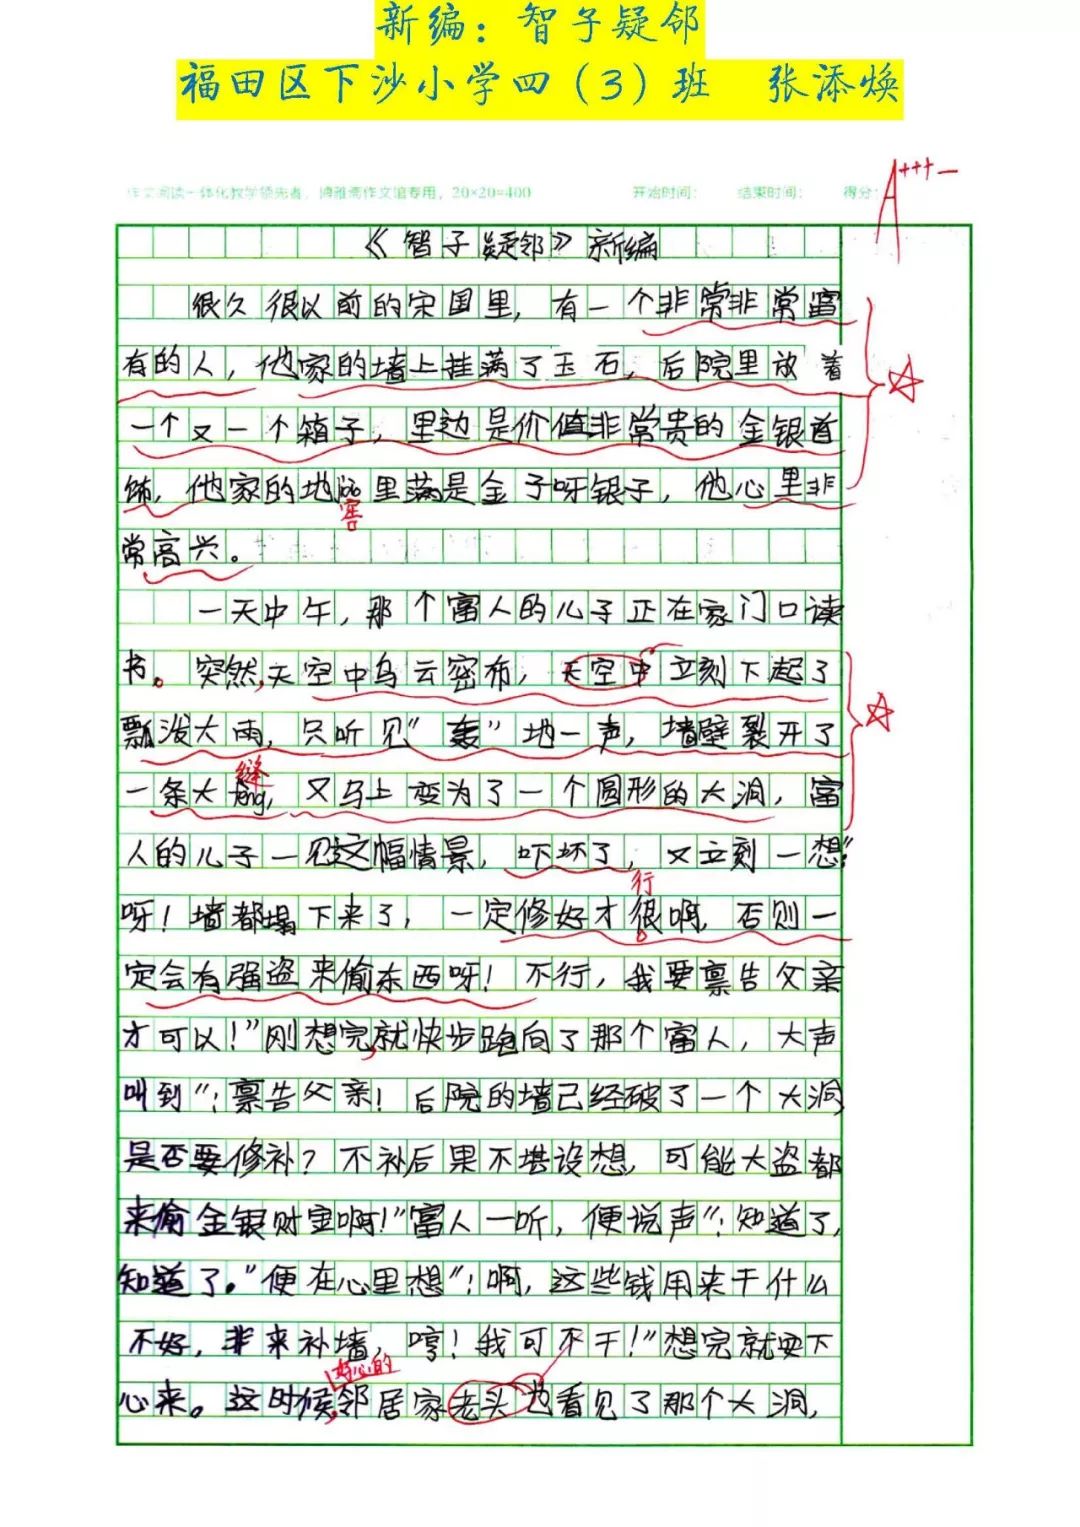 新编：智子疑邻
福田区下沙小学四（3）班 张添焕
作文阅读一体化教学领先者，博雅斋作文馆专用，20×20=400 开始时间： 结束时间： 得分：
A+++-
《智子疑邻》新编
很久很以前的宋国里，有一个非常非常富
有的人，他家的墙上挂满了玉石，后院里放着
一个又一个箱子，里边是价值非常贵的金银首
饰，他家的地里满是金子呀银子，他心里非
窖
常高兴。
一天中午，那个富人的儿子正在家门口读
书。突然，天空中乌云密布，天空中立刻下起了
瓢泼大雨，只听见“轰”地一声，墙壁裂开了
缝
一条大féng，又马上变为了一个圆形的大洞，富
人的儿子一见这幅情景，吓坏了，又立刻一想“
行
呀！墙都塌下来了，一定修好才很啊，否则一
定会有强盗来偷东西呀！不行，我要禀告父亲
才可以！”刚想完，就快步跑向了那个富人，大声
叫到“：禀告父亲！后院的墙已经破了一个大洞
是否要修补？不补后果不堪设想，可能大盗都
来偷金银财宝啊！”富人一听，便说声“：知道了，
知道了。”便在心里想“：啊，这些钱用来干什么
不好，非来补墙，哼！我可不干！”想完就安下
好心的
心来。这时候，邻居家老头也看见了那个大洞，